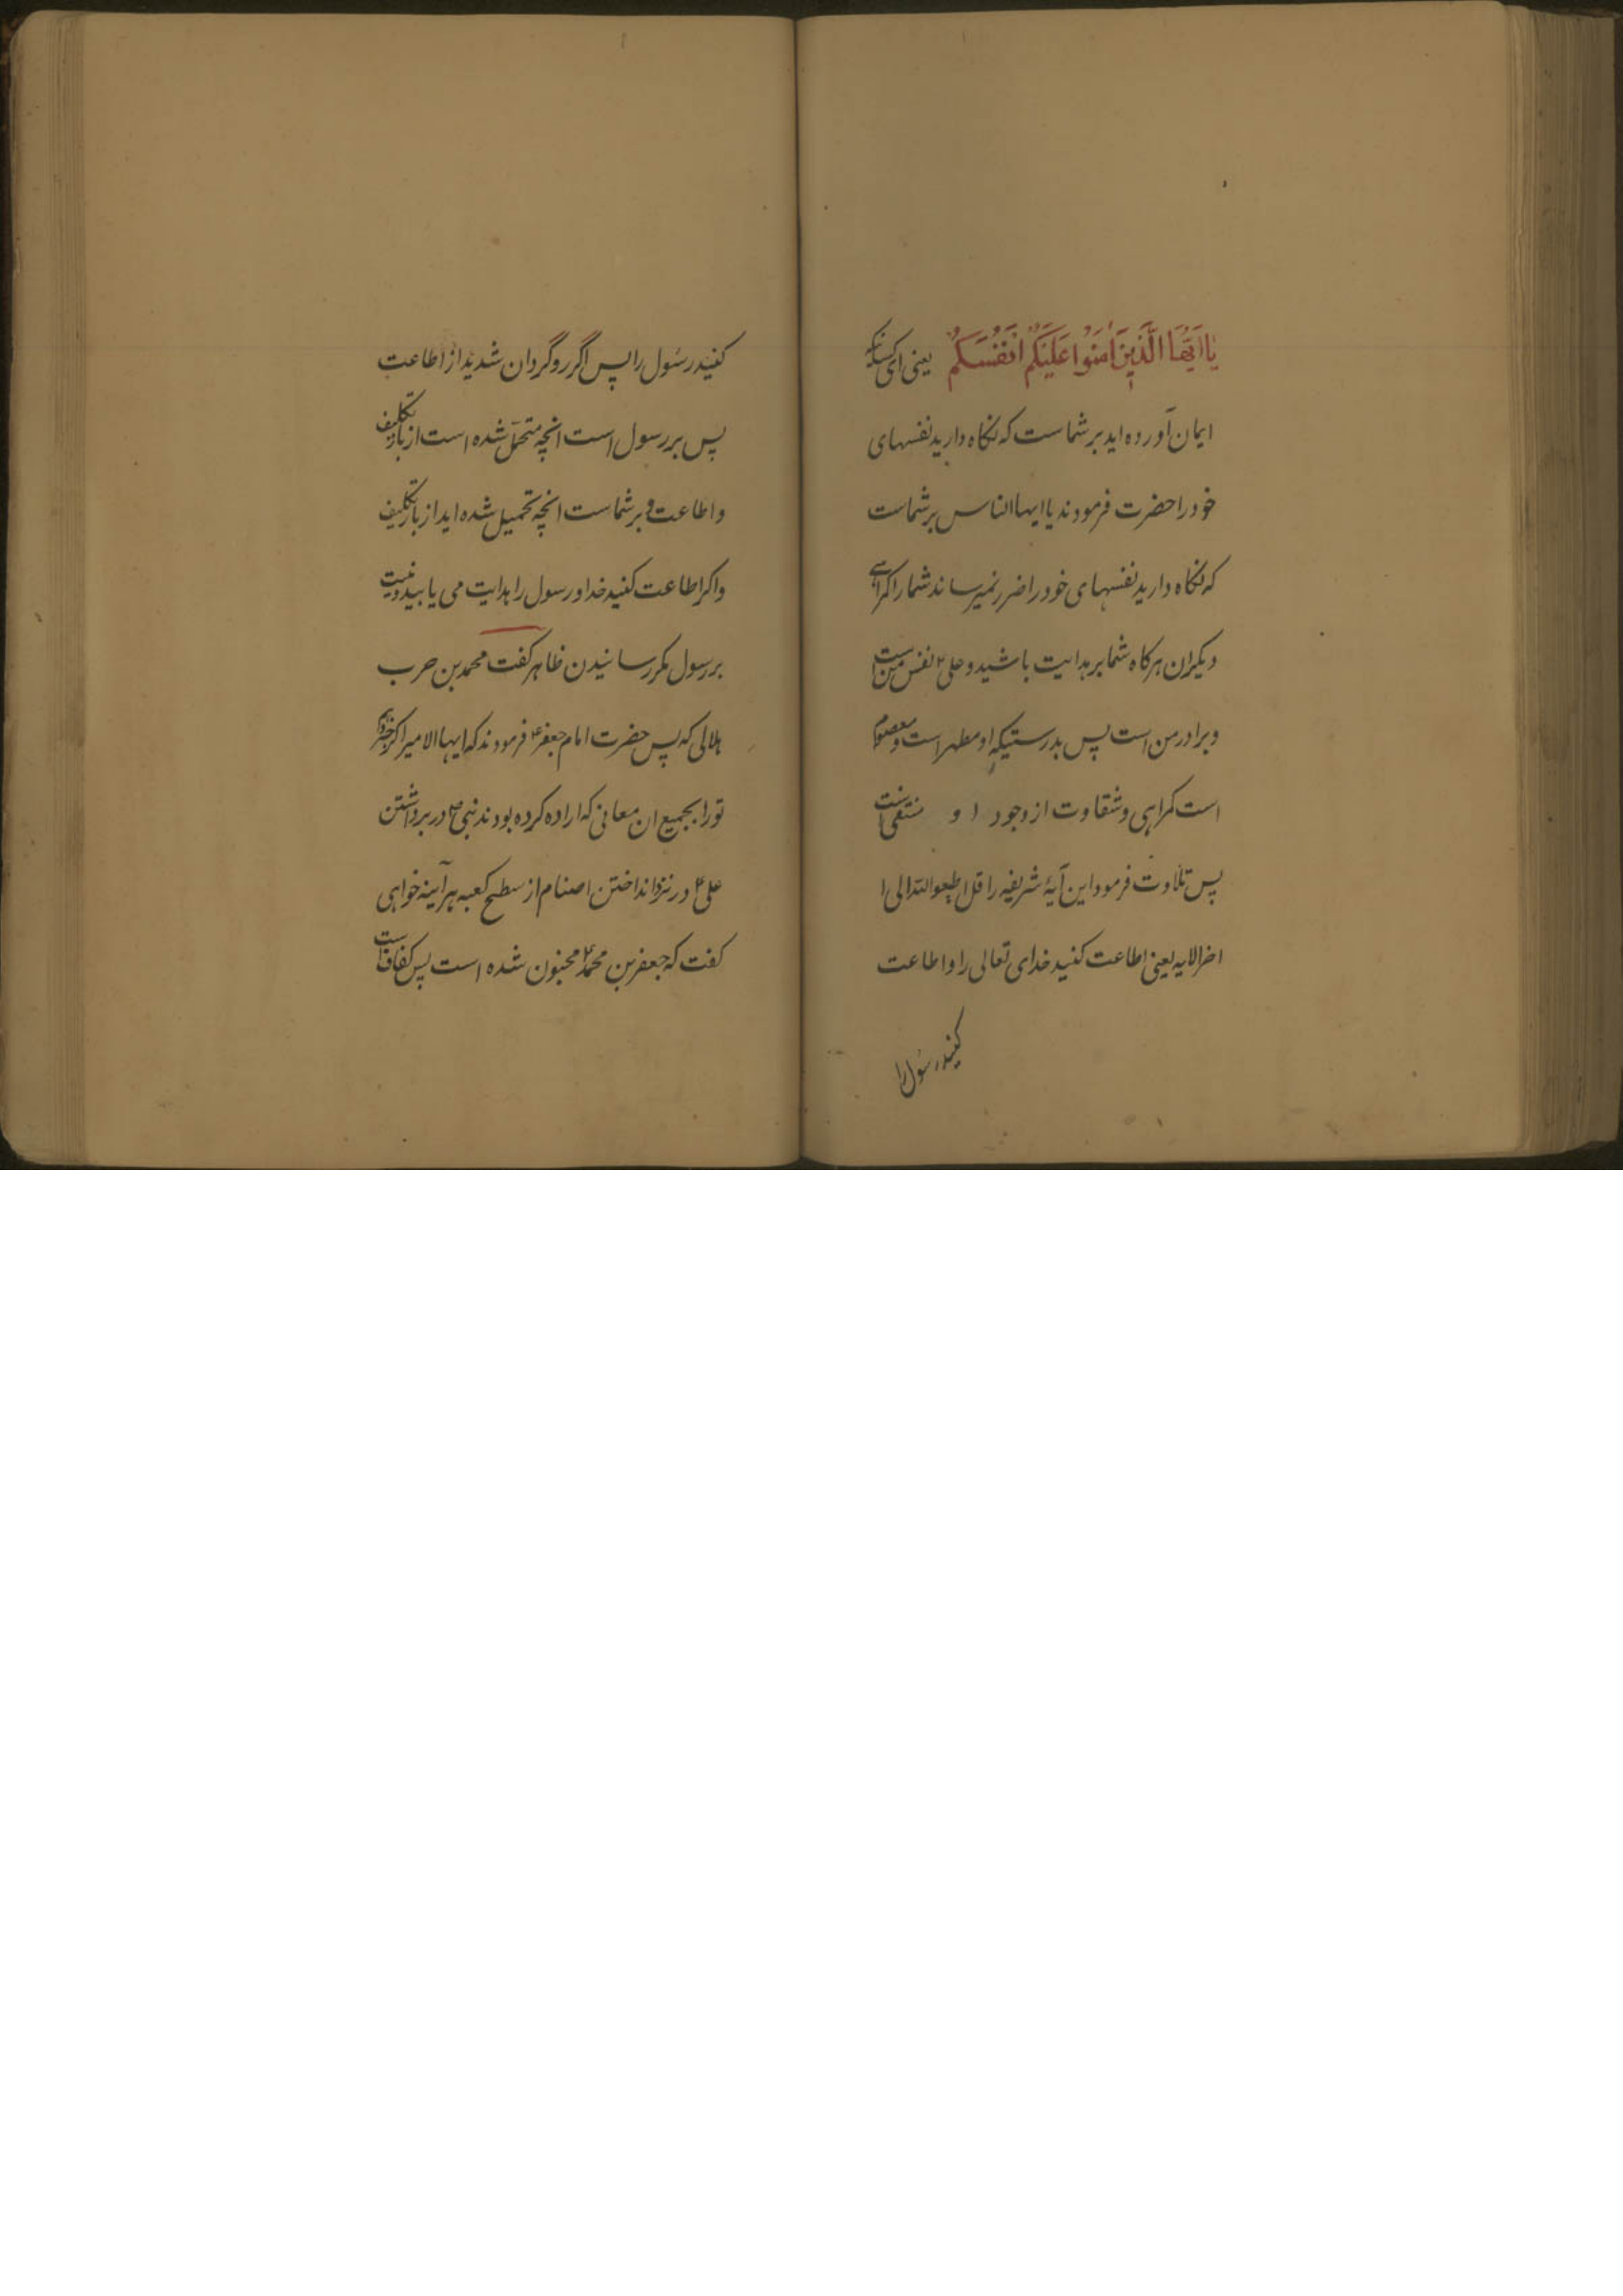 یا ایها الذین امنوا علیکم انفسکم یعنی ای کسانیکه
ایمان آورده اید بر شماست که نکاه دارید نفسهای
خود را حضرت فرمودند یا ایها الناس بر شماست
که نکاه دارید نفسهای خود را ضرر نمیرساند شما را کمراهی
دیکران هر کاه شما بر هدایت باشید و علی نفس من است
و برادر من است پس بدرستیکه او مطهر است و معصوم
است کمراهی و شقاوت از وجود او منتفی است
پس تلاوت فرمود این آیهٔ شریفه را قل اطیعوا الله الی ا
اخر الایه یعنی اطاعت کنید خدای تعالی را و اطاعت
کنید رسول را
کنید رسول را پس اگر روگردان شدید از اطاعت
پس بر رسول است انچه متحمل شده است از بار تکلیف
و اطاعت و بر شماست انچه تحمیل شده اید از بار تکلیف
و اکر اطاعت کنید خدا و رسول را هدایت می یابید و نیست
بر رسول مکر رسانیدن ظاهر کفت محمد بن حرب
هلالی که پس حضرت امام جعفر ع فرمودند که ایها الامیر اکر خبر دهم
تو را بجمیع ان معانی که اراده کرده بودند نبی ص در برداشتن
علی ع در نزد انداختن اصنام از سطح کعبه هر آینه خواهی
کفت که جعفر بن محمد ع مجنون شده است پس کفاف است